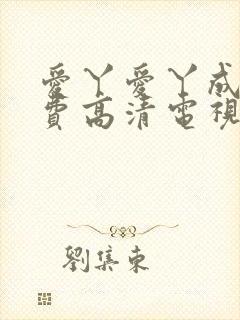 愛丫愛丫成
費高清電視
劉集東